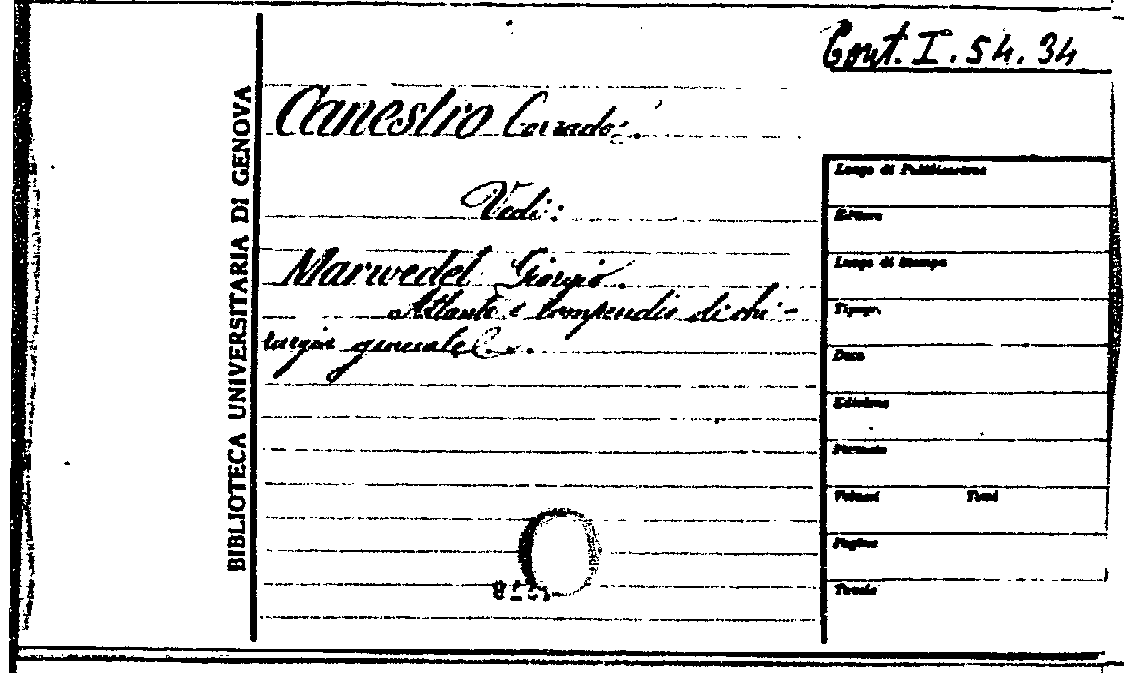 Cont. I. 54. 34
BIBLIOTECA UNIVERSITARIA DI GENOVA
Canestro Corrado.
Vedi:
Marwedel Giorgio.
Atlante e compendio di chi-
rurgia generale
Luogo di Pubblicazione
Editore
Luogo di Stampa
Tipogr.
Data
Edizione
Formato
Volumi Tomi
Pagine
Tavole